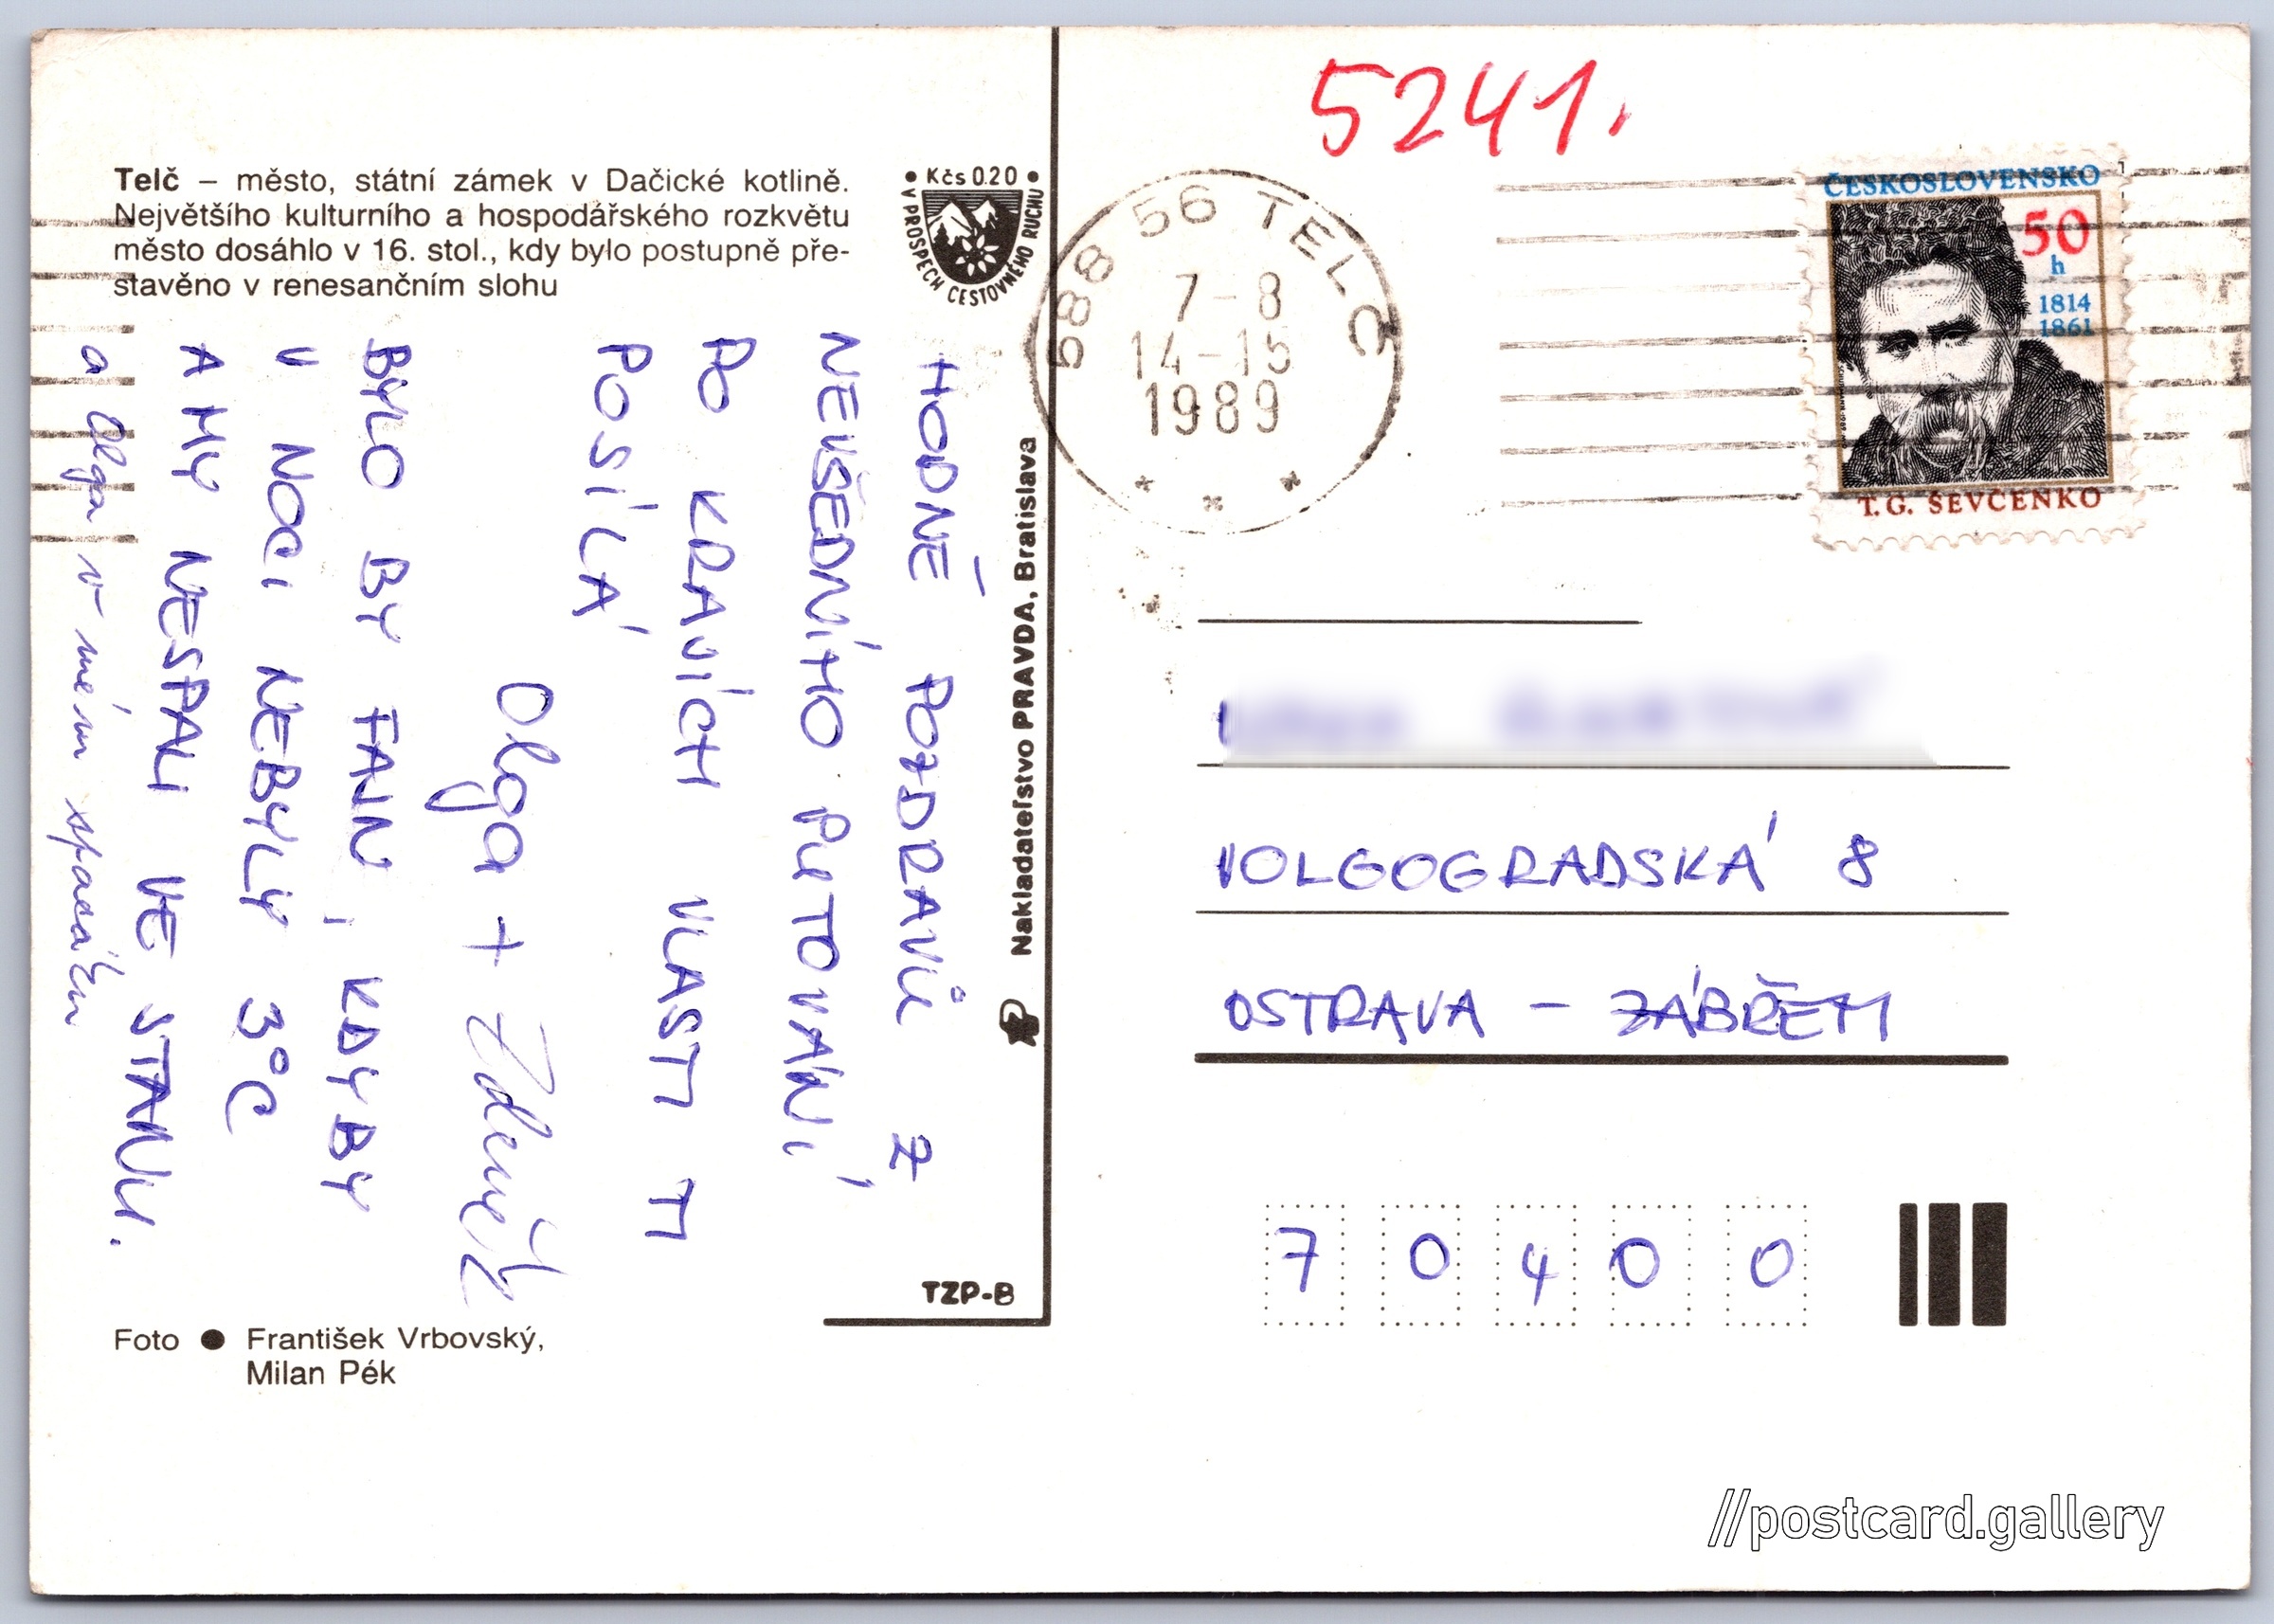 Telč – město, státní zámek v Dačické kotlině.
Největšího kulturního a hospodářského rozkvětu
město dosáhlo v 16. stol., kdy bylo postupně pře-
stavěno v renesančním slohu
• Kčs 0.20 •
V PROSPECH CESTOVNÉHO RUCHU
HODNĚ POZDRAVŮ Z
NEVŠEDNÍHO PUTOVÁNÍ
PO KRAVÍCH VLASTI TI
POSÍLÁ
Olga + Zdeněk
BYLO BY FAJN, KDYBY
V NOCI NEBYLY 3°C
A MY NESPALI VE STANU.
a Olga v mém spacáku
Nakladateľstvo PRAVDA, Bratislava
TZP-B
Foto ● František Vrbovský,
Milan Pék
5241.
588 56 TELČ
7–8
14–15
1989
ČESKOSLOVENSKO
50
h
1814
1861
T. G. ŠEVČENKO
VOLGOGRADSKÁ 8
OSTRAVA – ZÁBŘEH
7 0 4 0 0
//postcard.gallery